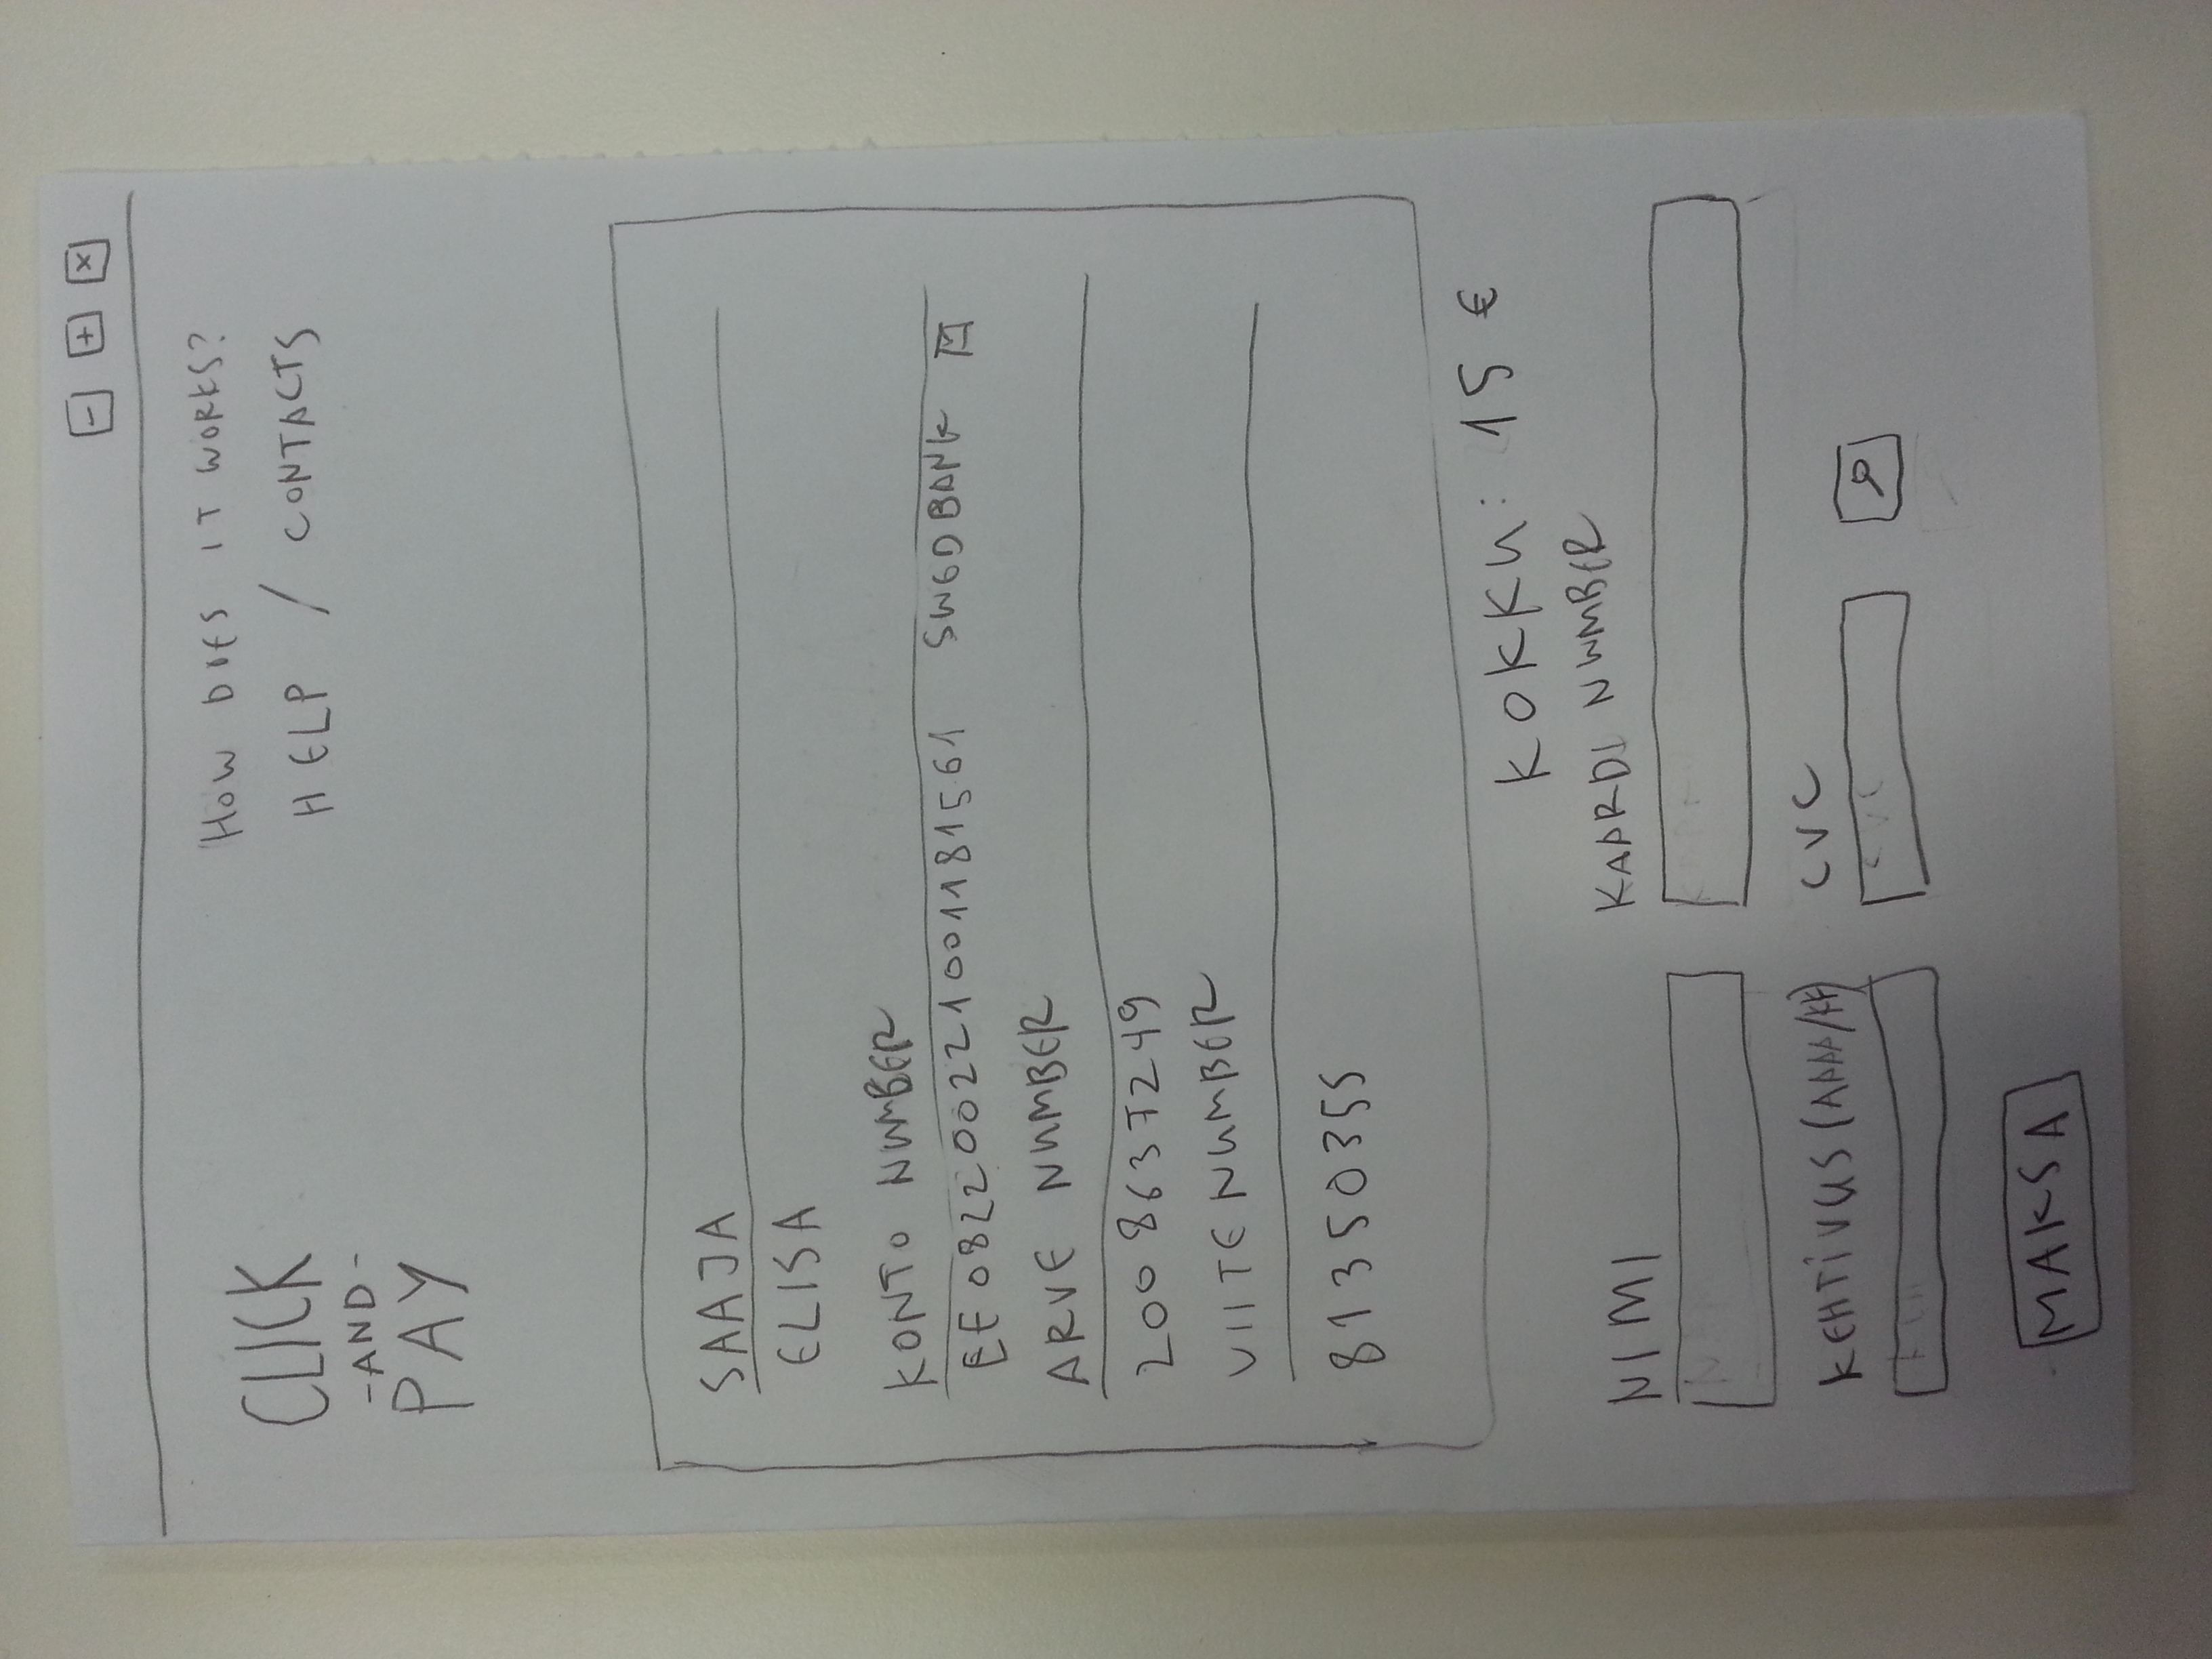 - + x
HOW DOES IT WORKS?
HELP / CONTACTS
CLICK
-AND-
PAY
SAAJA
ELISA
KONTO NUMBER
EE082200221001181561 SWEDBANK
ARVE NUMBER
2008637249
VIITENUMBER
81350355
KOKKU: 15 €
NIMI
KAARDI NUMBER
KEHTIVUS (AAAA/KK)
CVC
MAKSA